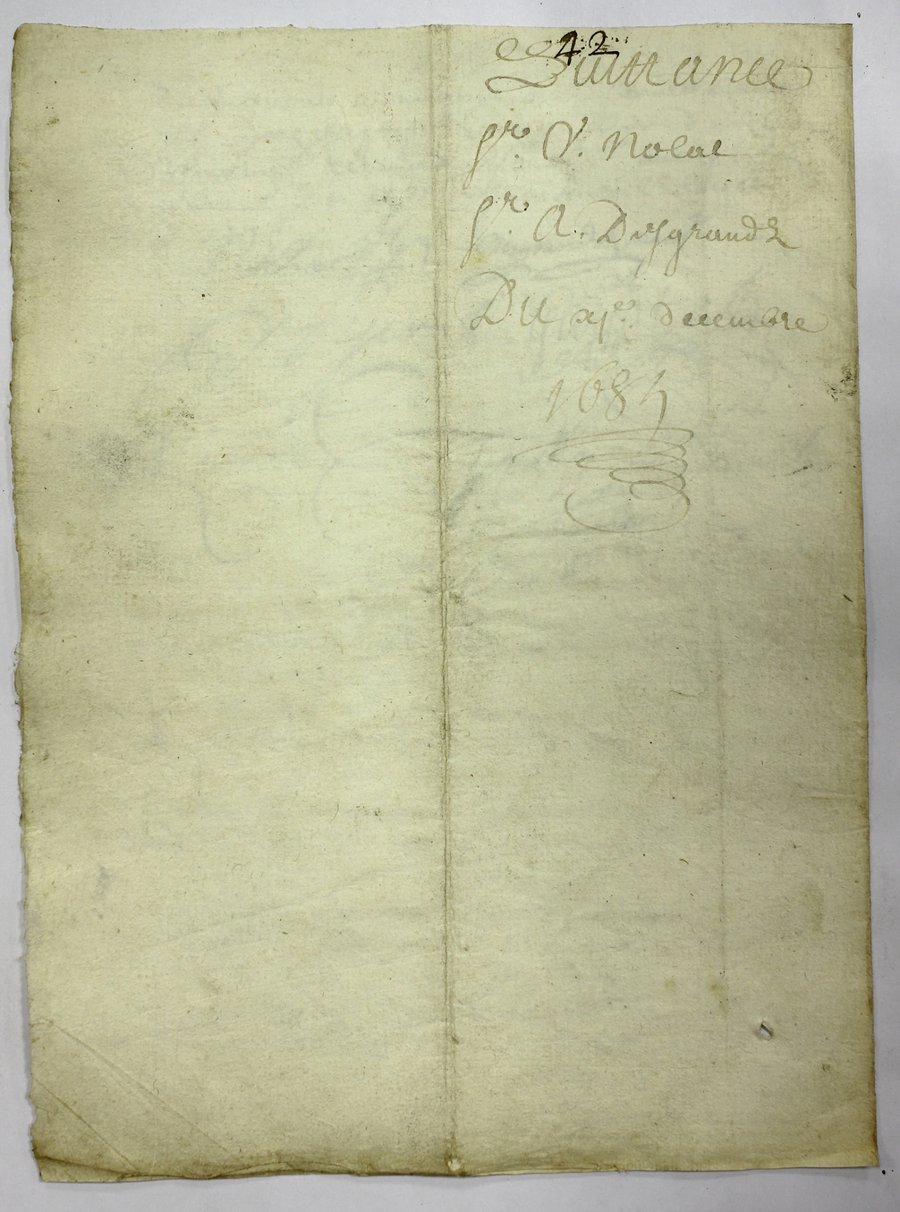 42
Quittance
pr. V. Nolae
pr. A. Desgrandz
Du xje. decembre
1684